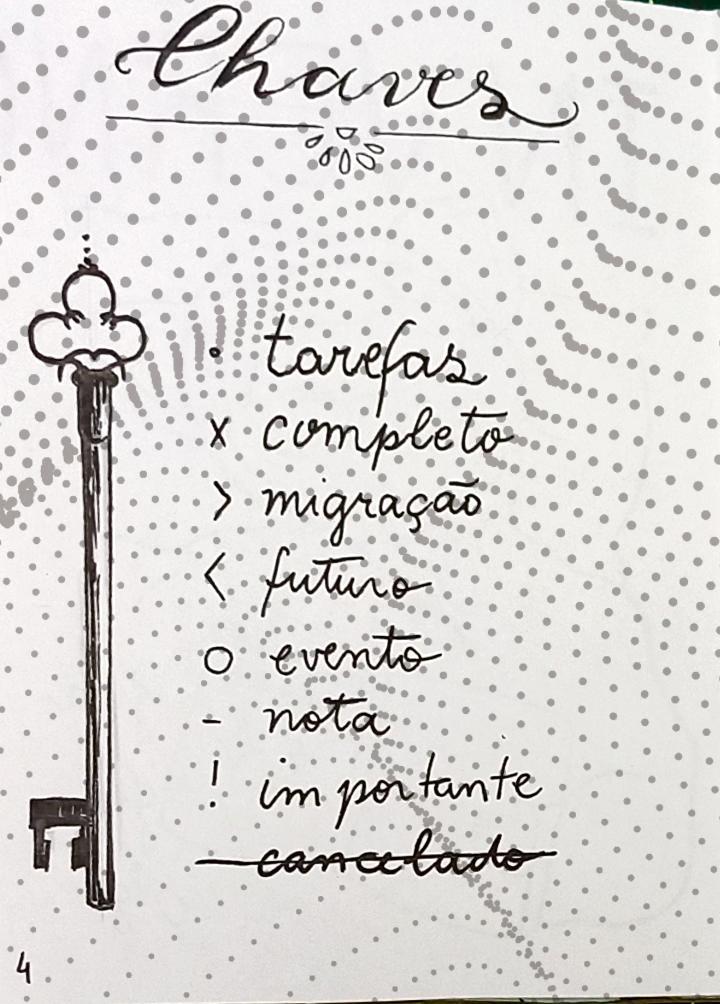 Chaves
• tarefas
x completo
> migração
< futuro
o evento
- nota
! importante
cancelado
4